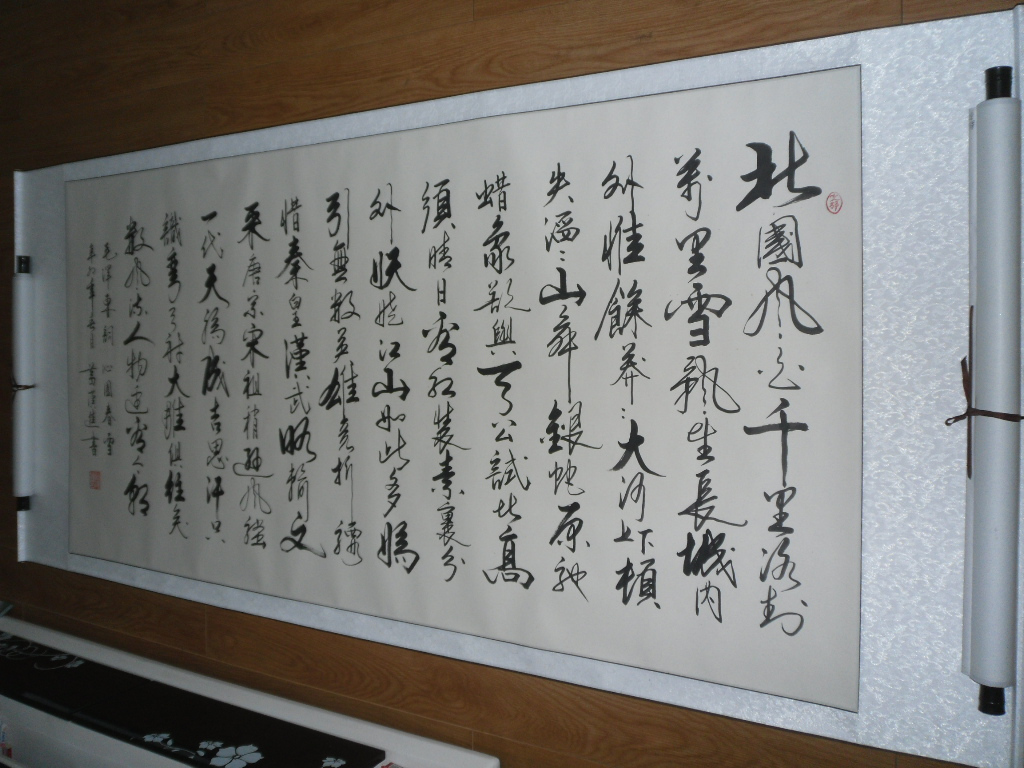 北國风光千里冰封
萬里雪飘望長城内
外惟餘莽〻大河上下頓
失滔〻山舞銀蛇原驰
蜡象欲與天公試比高
須晴日看红装素裹分
外妖娆江山如此多嬌
引無数英雄竞折腰
惜秦皇漢武略输文
采唐宗宋祖稍遜风骚
一代天骄成吉思汗只
識弯弓射大雕俱往矣
数风流人物还看今朝
毛澤東詞 沁园春雪
辛卯年 書